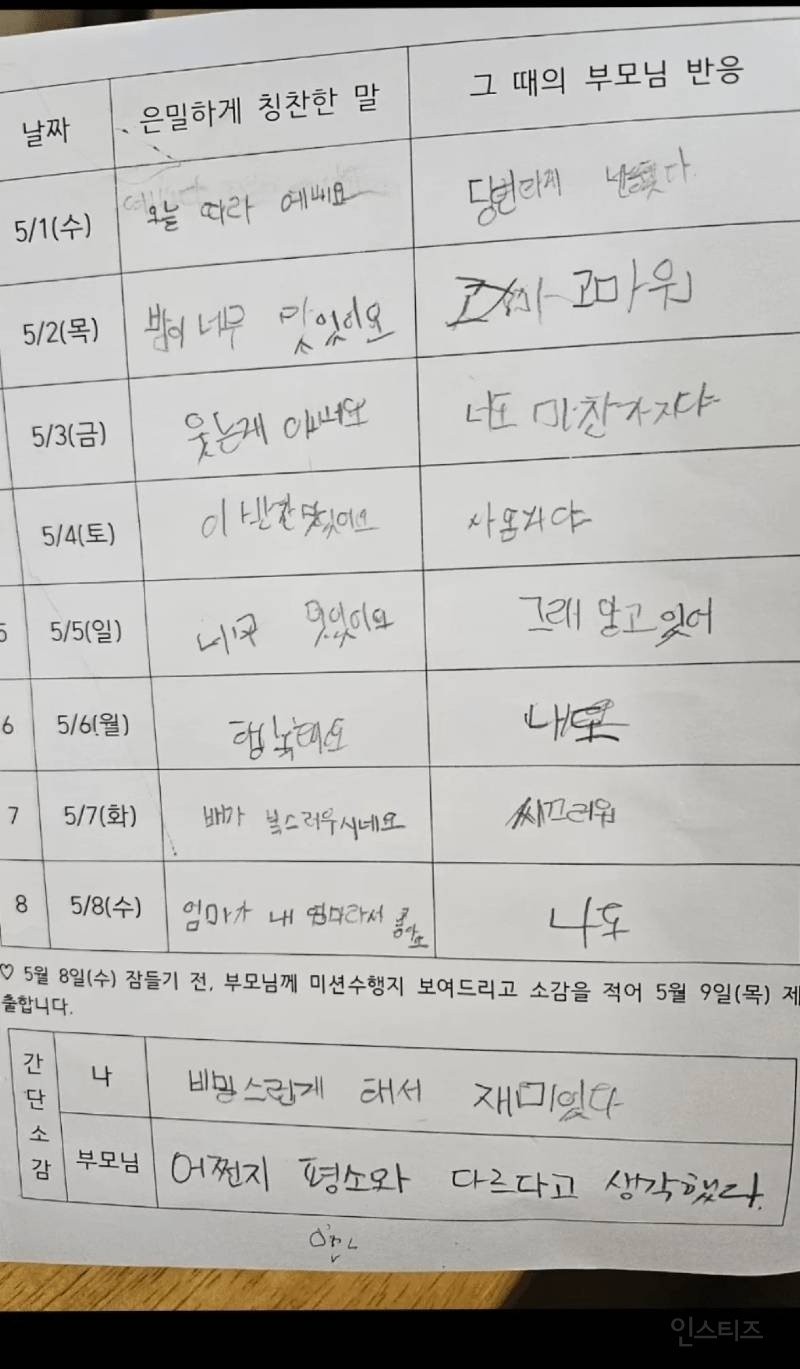 날짜 은밀하게 칭찬한 말 그 때의 부모님 반응
5/1(수) 오늘 따라 예뻐요
5/2(목) 밥이 너무 맛있어요 고마워
5/3(금) 웃는게 너도 마찬가지야
5/4(토) 이 반찬 맛있어요
5/5(일) 너무 멋있어요 그래 알고 있어
6 5/6(월) 행복해요 내도
7 5/7(화) 배가 복스러우시네요 씨끄러워
8 5/8(수) 엄마가 내 엄마라서 좋아요 나도
♡ 5월 8일(수) 잠들기 전, 부모님께 미션수행지 보여드리고 소감을 적어 5월 9일(목) 제
출합니다.
간단소감
나 비밀스럽게 해서 재미있다
부모님 어쩐지 평소와 다르다고 생각했다.
인스티즈